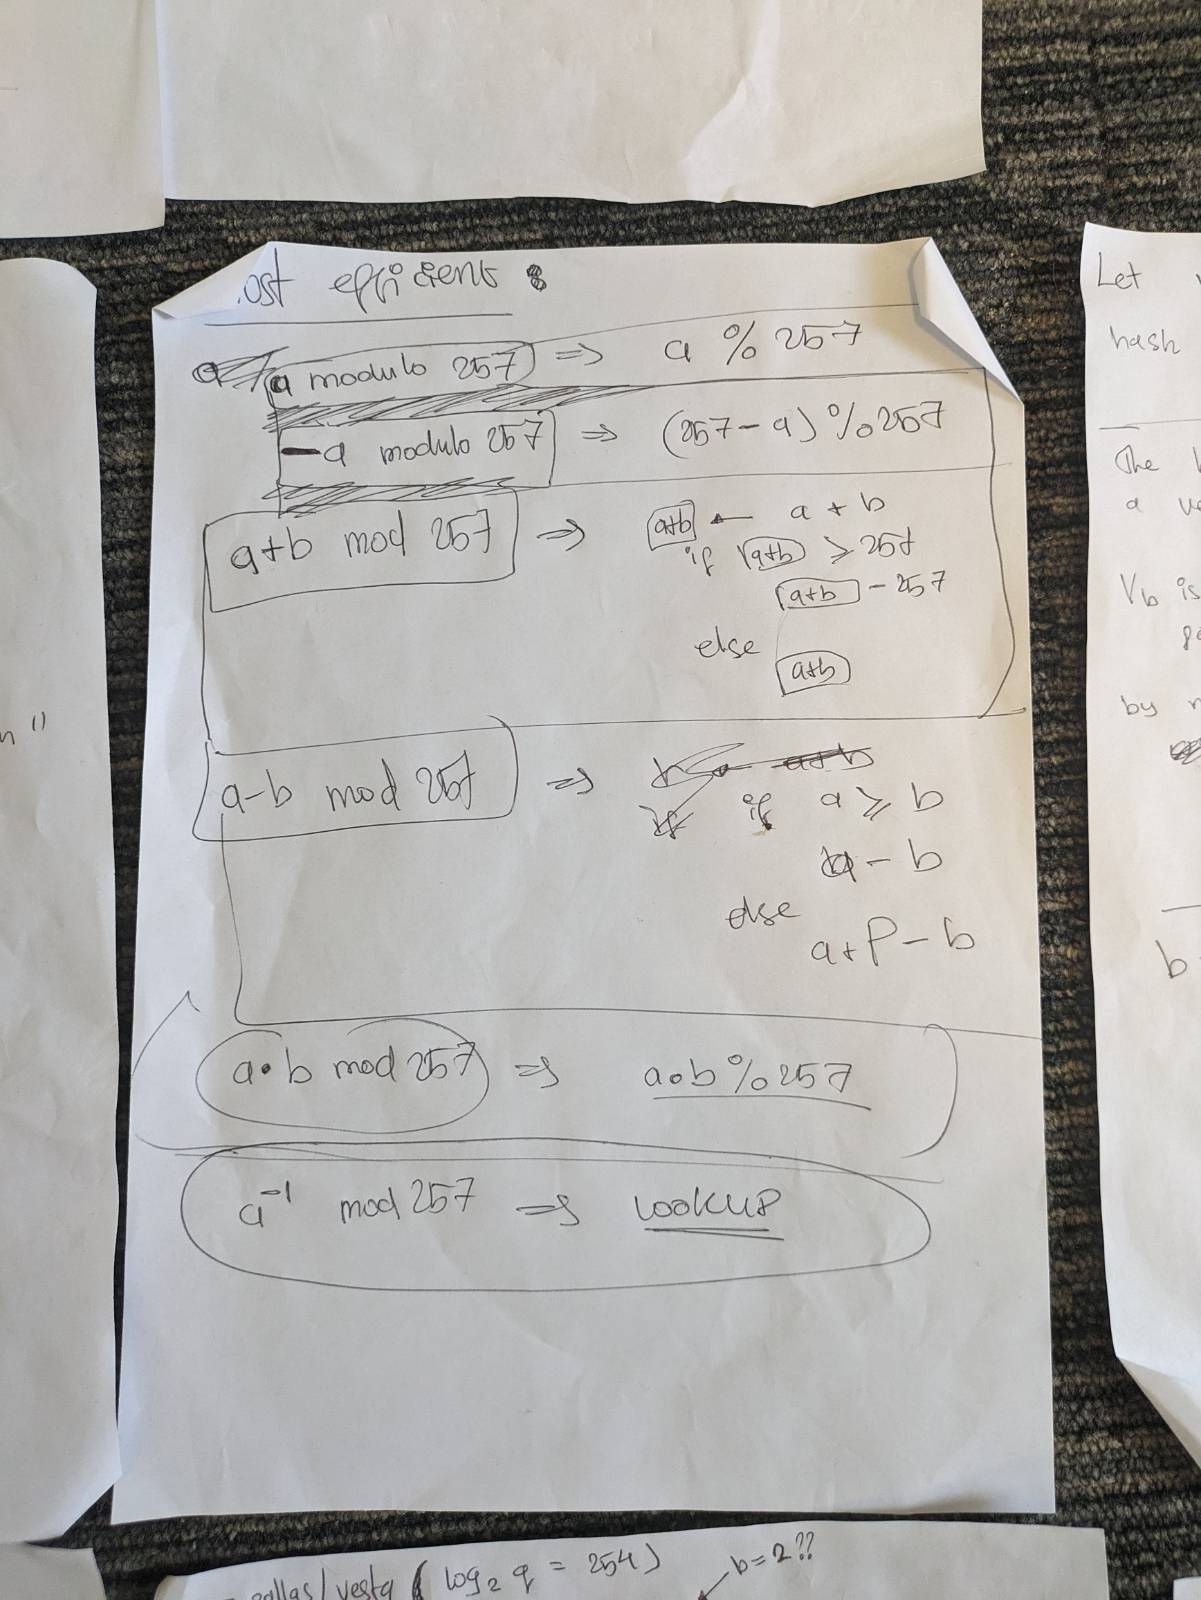 ost efficient :
a modulo 257 => a % 257
-a modulo 257 => (257 - a) % 257
a+b mod 257 => a+b ← a + b
if a+b ⩾ 257
a+b - 257
else
a+b
a-b mod 257 => if a ⩾ b
a - b
else
a + P - b
a•b mod 257 => a•b % 257
a⁻¹ mod 257 => LOOKUP
Let
hash
The
a
V_b is
by
b
n "
pallas/vesta ( log₂ q = 254)
b=2??